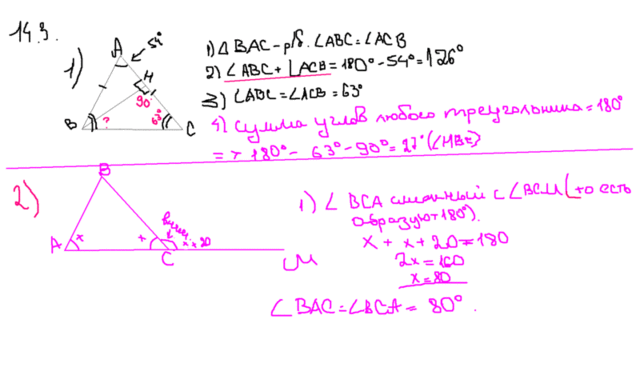 14.3.
1)
A
54°
H
90°
B
?
63°
C
1) Δ BAC - р/б. ∠ABC = ∠ACB
2) ∠ABC + ∠ACB = 180° - 54° = 126°
3) ∠ABC = ∠ACB = 63°
4) сумма углов любого треугольника = 180°
=> 180° - 63° - 90° = 27° (∠HBC)
2)
B
A
x
x
внеш.
x + 20
C
M
1) ∠ BCA смежный с ∠BCM (то есть
образуют 180°).
x + x + 20 = 180
2x = 160
x = 80
∠BAC = ∠BCA = 80°.